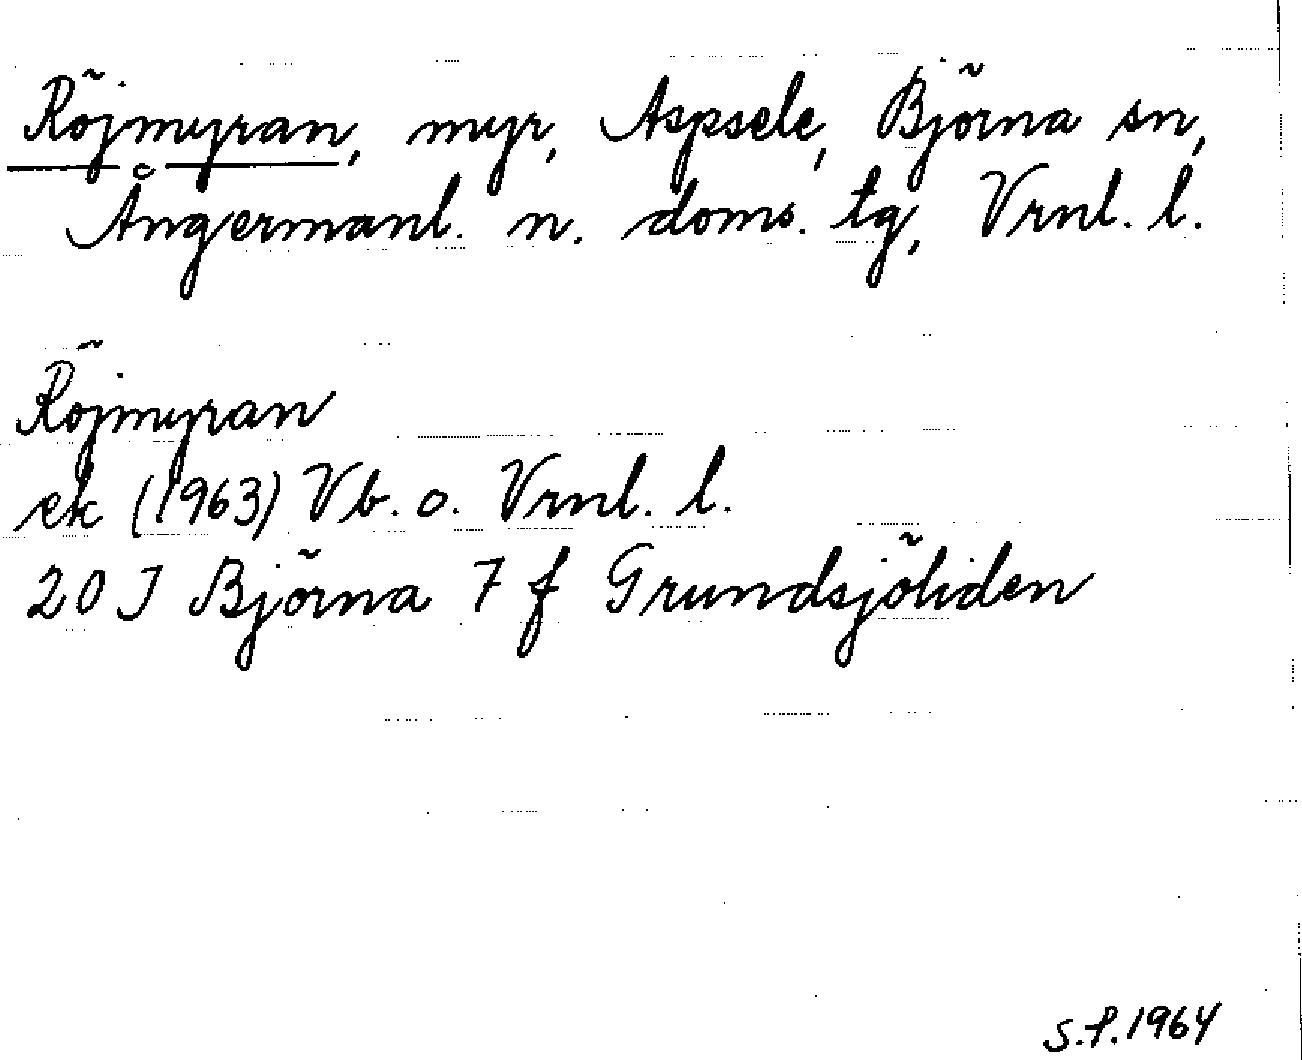 Röjmyran, myr, Aspsele, Björna sn,
Ångermanl. n. doms. tg, Vrnl. l.
Röjmyran
ek (1963) Vb. o. Vrnl. l.
20 J Björna 7 f Grundsjöliden
S.P. 1964